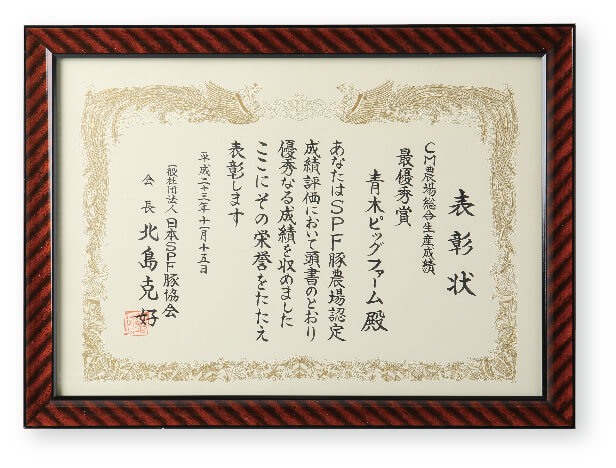 表彰状
CM農場総合生産成績
最優秀賞
青木ピッグファーム殿
あなたはSPF豚農場認定
成績評価において頭書のとおり
優秀なる成績を収めました
ここにその栄誉をたたえ
表彰します
平成二十三年十一月十五日
一般社団法人日本SPF豚協会
会長 北島克好